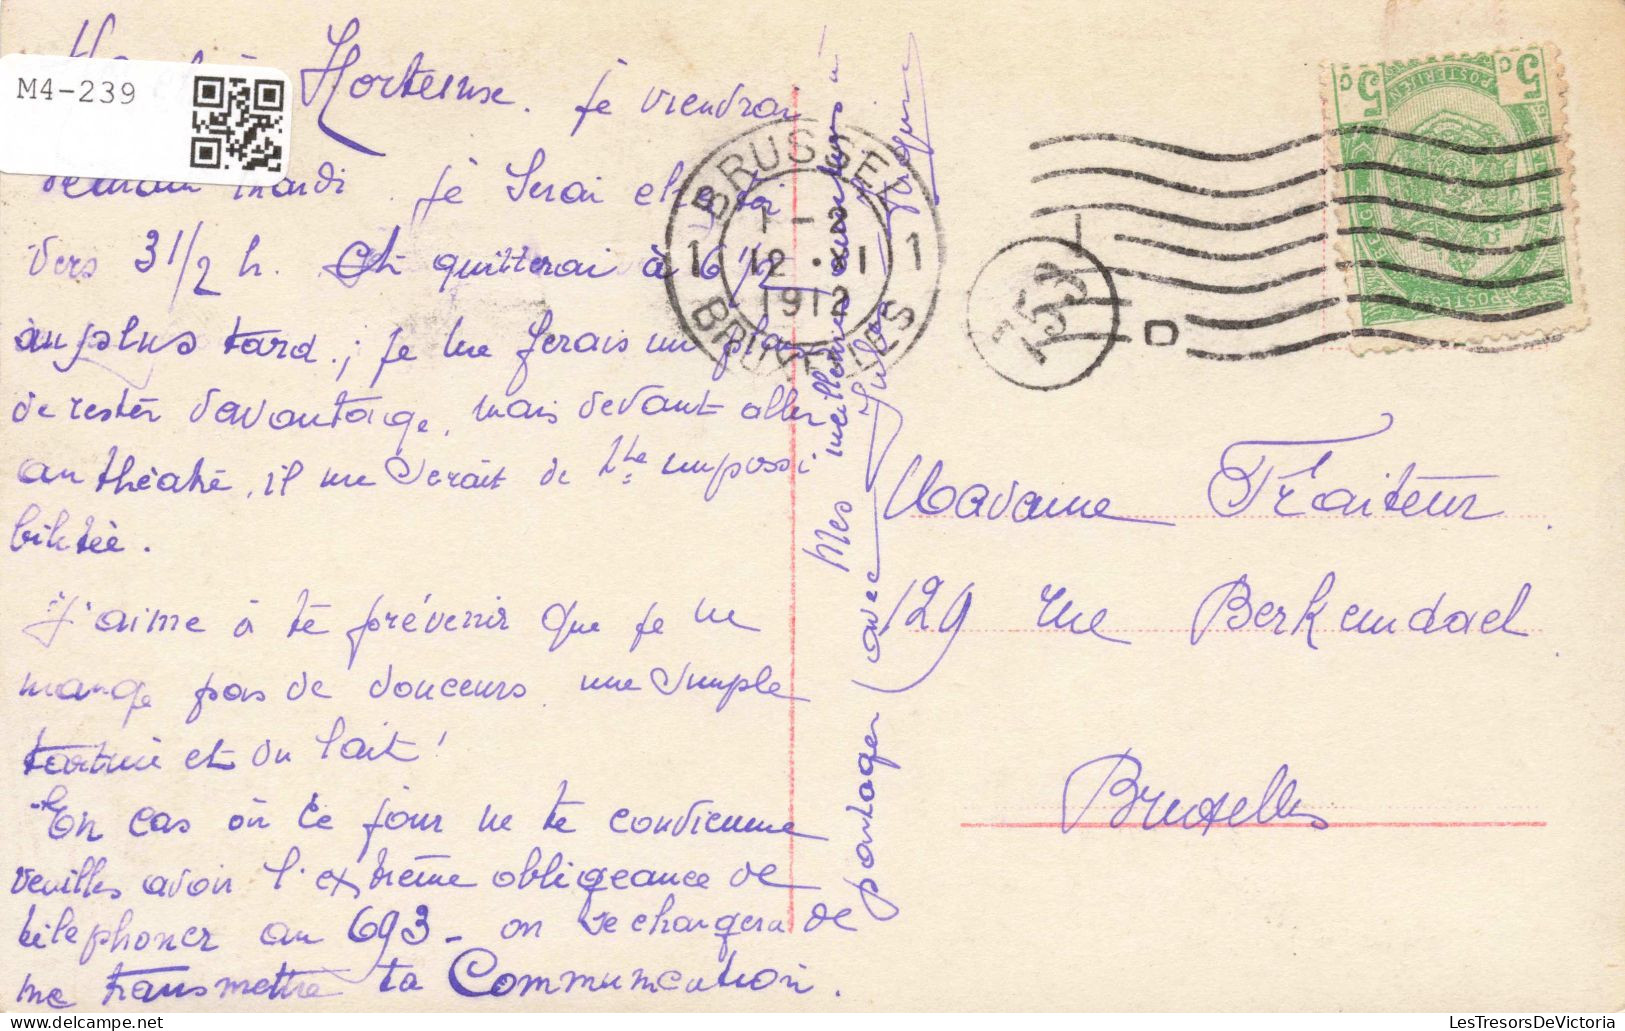 M4-239
Hortense. je viendrai
demain mardi. je serai chez toi
vers 3 1/2 h. et quitterai à 6 1/2
au plus tard.; je me ferais un plaisir
de rester davantage, mais devant aller
au théatre, il me serait de tte impossi
bilitée.
J'aime à te prévenir que je ne
mange pas de douceurs une simple
tartine et du lait!
En cas où ce jour ne te convienne
veuilles avoir l'extrême obligeance de
téléphoner au 693 - on se chargera de
me transmettre ta Communication.
Mes meilleures amitiés à
partager avec Jules
BRUSSEL
1 1
12 · XI
1912
BRUXELLES
753
D
5 c 5 c
POSTERIJEN
POSTES
Madame Traiteur
129 rue Berkendael
Bruxelles
LesTresorsDeVictoria